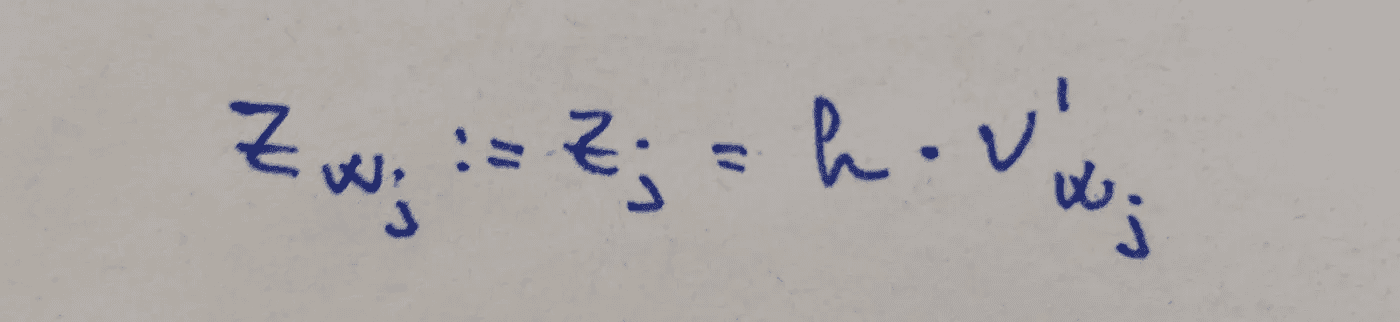 Z_{w_j} := z_j = h · v'_{w_j}